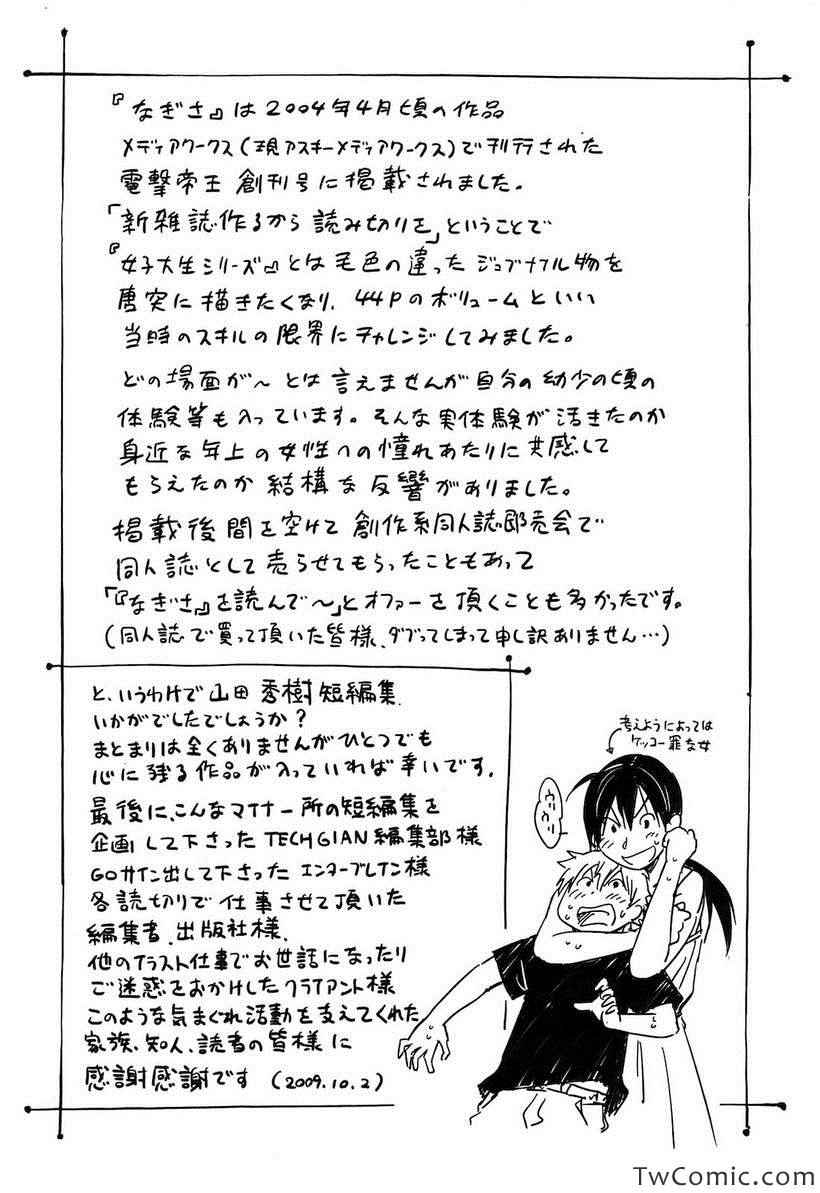 『なぎさ』は2004年4月頃の作品
メディアワークス(現アスキーメディアワークス)で刊行された
電撃帝王 創刊号に掲載されました。
「新雑誌作るから読み切りを」ということで
『女子大生シリーズ』とは毛色の違ったジュブナイル物を
唐突に描きたくなり、44Pのボリュームといい
当時のスキルの限界にチャレンジしてみました。
どの場面が～とは言えませんが自分の幼少の頃の
体験等も入っています。そんな実体験が活きたのか
身近な年上の女性への憧れあたりに共感して
もらえたのか結構な反響がありました。
掲載後間を空けて創作系同人誌即売会で
同人誌として売らせてもらったこともあって
「『なぎさ』を読んで～」とオファーを頂くことも多かったです。
(同人誌で買って頂いた皆様、ダブってしまって申し訳ありません…)
と、いうわけで山田秀樹短編集
いかがでしたでしょうか?
まとまりは全くありませんがひとつでも
心に残る作品が入っていれば幸いです。
最後に、こんなマイナー所の短編集を
企画して下さったTECHGIAN編集部様
GOサイン出して下さったエンターブレイン様
各読切りで仕事させて頂いた
編集者、出版社様、
他のイラスト仕事でお世話になったり
ご迷惑をおかけしたクライアント様
このような気まぐれ活動を支えてくれた
家族、知人、読者の皆様に
感謝感謝です (2009.10.2)
考えようによっては
ケッコー罪な女
TwComic.com